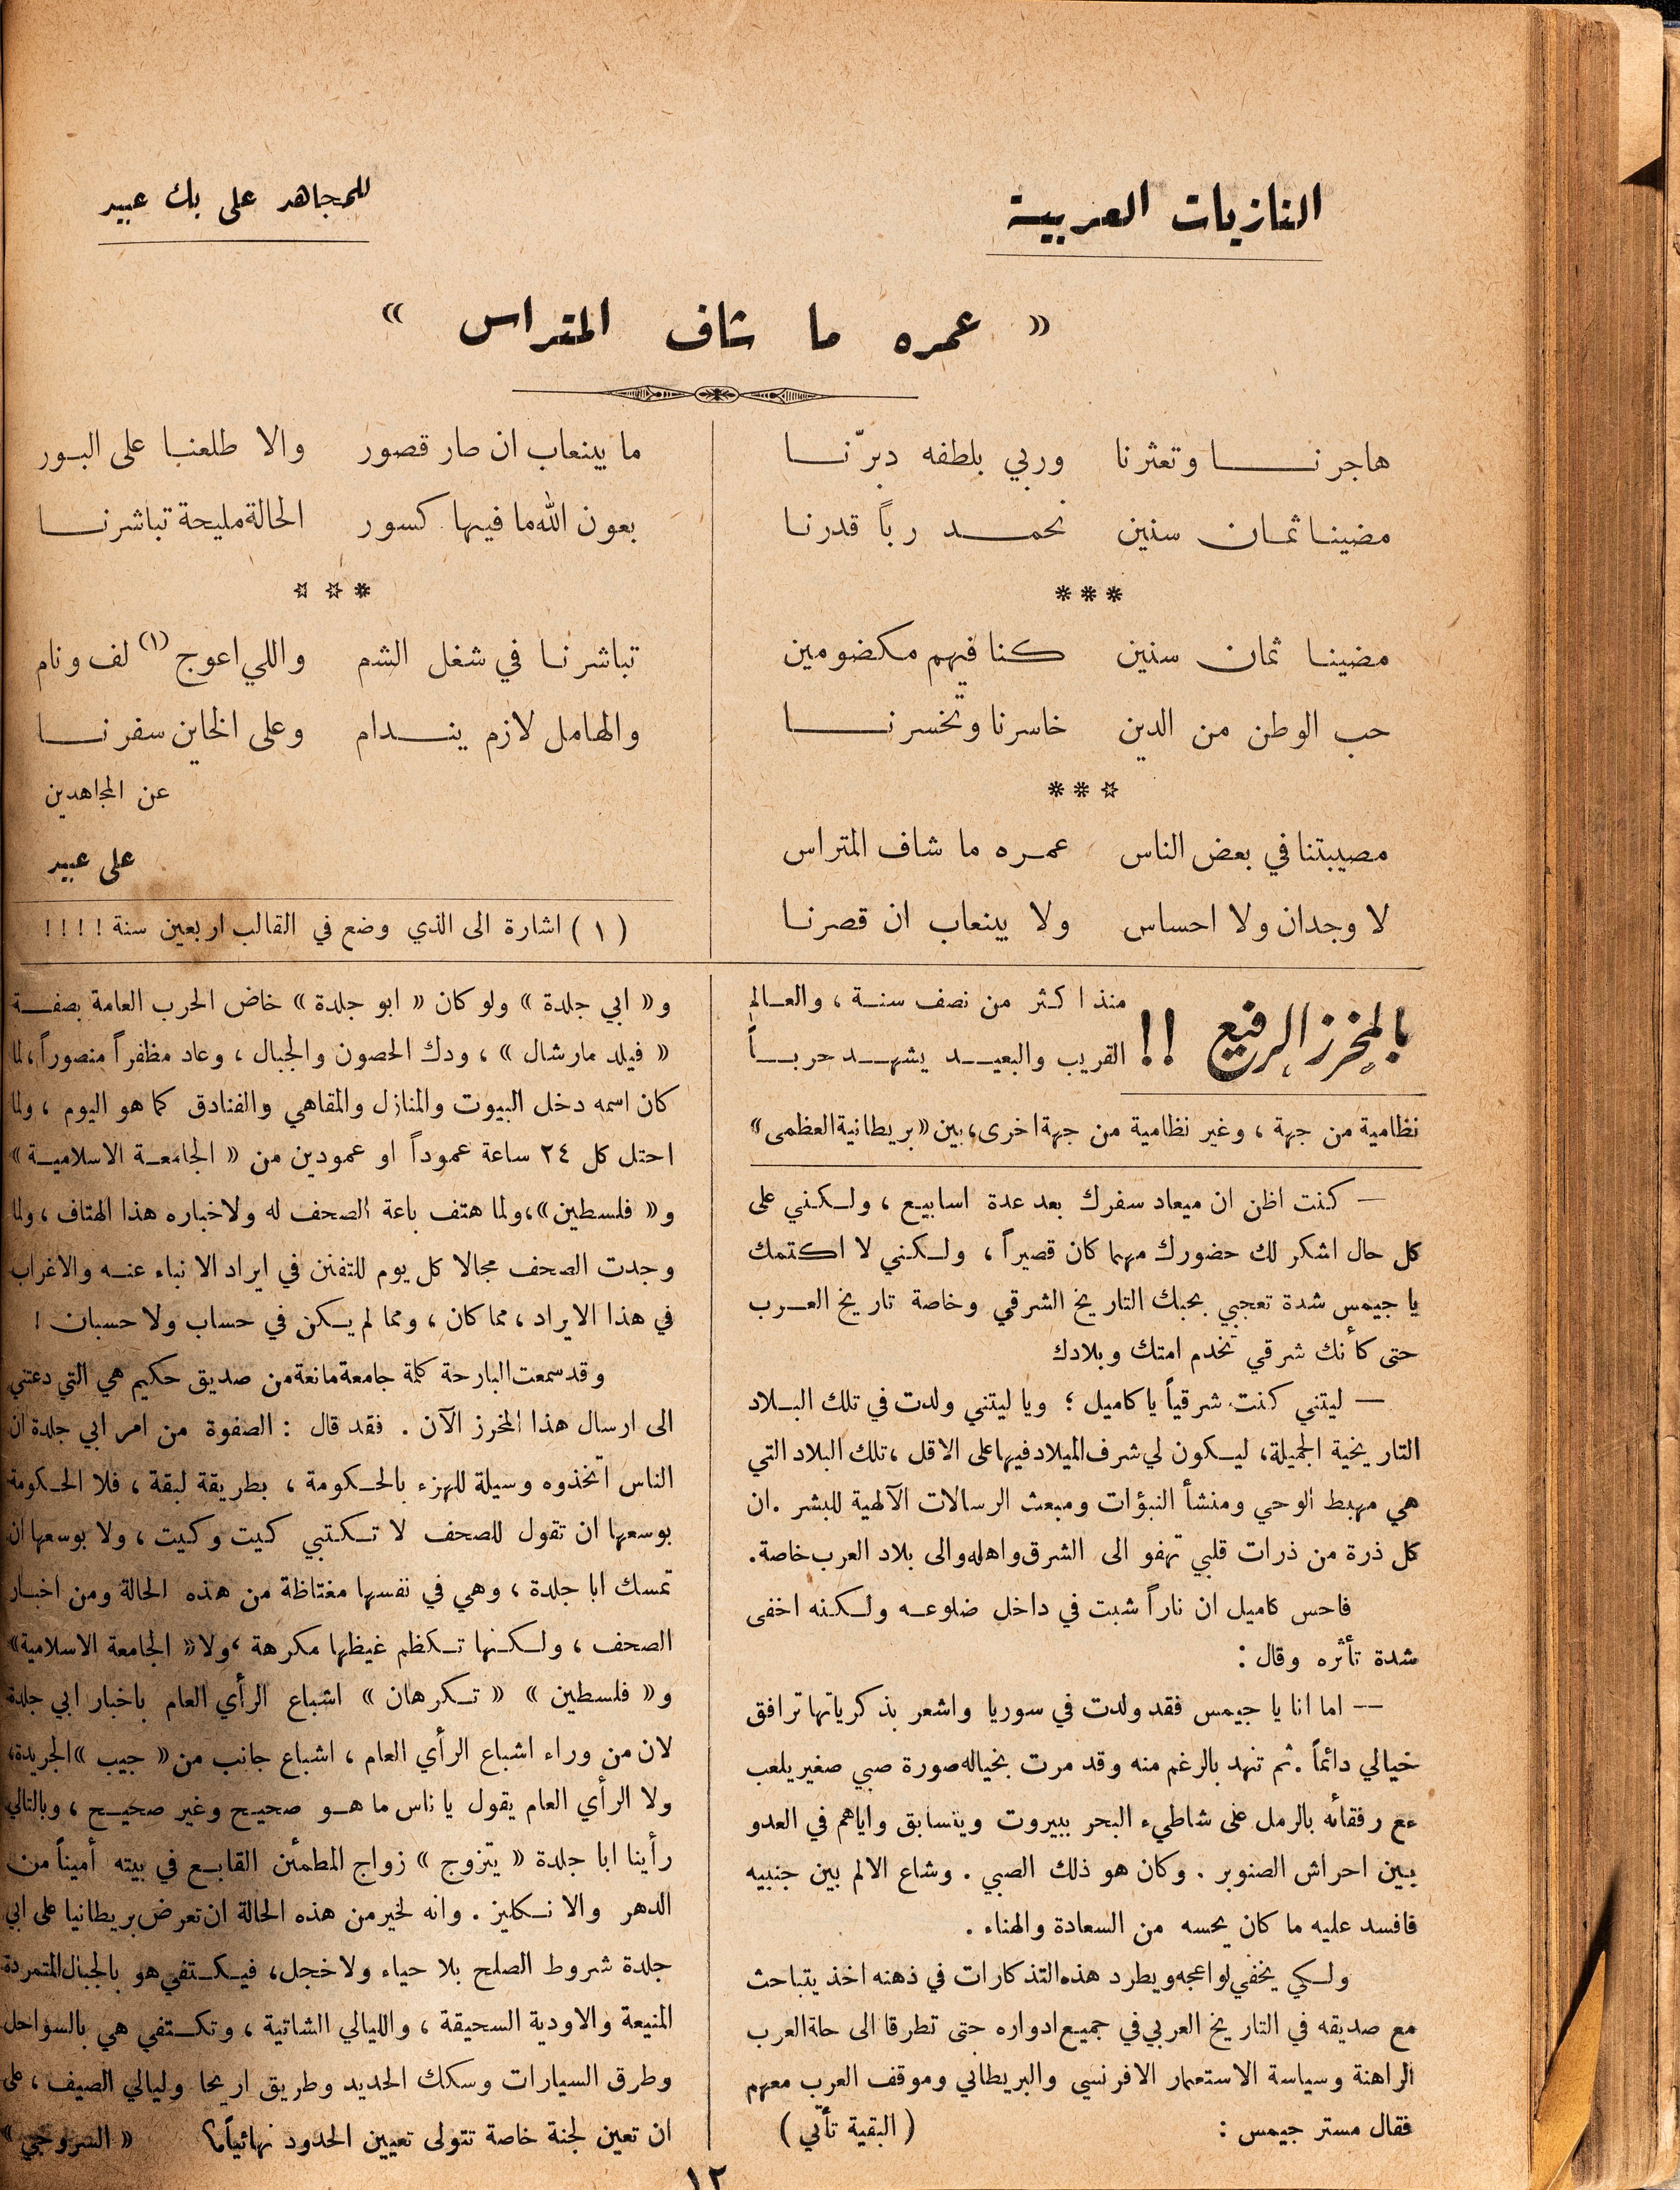 النازيات العربية
للمجاهد علي بك عبيد
« عمره ما شاف المتراس »
هاجرنا وتعثرنا وربي بلطفه دبّرنا
مضينا ثمان سنين نحمد رباً قدرنا
***
مضينا ثمان سنين كنا فيهم مكضومين
حب الوطن من الدين خاسرنا وتخسرنا
***
مصيبتنا في بعض الناس عمره ما شاف المتراس
لا وجدان ولا احساس ولا يينعاب ان قصرنا
ما يينعاب ان صار قصور والا طلعنا على البور
بعون الله ما فيها كسور الحالة مليحة تباشرنا
***
تباشرنا في شغل الشم واللي اعوج (١) لف ونام
والهامل لازم يندام وعلى الخاين سفرنا
عن المجاهدين
علي عبيد
( ١ ) اشارة الى الذي وضع في القالب اربعين سنة ! ! ! !
بالمخرز الرفيع !!
منذ اكثر من نصف سنة ، والعالم
القريب والبعيد يشهد حرباً
نظامية من جهة ، وغير نظامية من جهة اخرى، بين «بريطانية العظمى»
و« ابي جلدة » ولو كان « ابو جلدة » خاض الحرب العامة بصفة
« فيلد مارشال » ، ودك الحصون والجبال ، وعاد مظفراً منصوراً ، لما
كان اسمه دخل البيوت والمنازل والمقاهي والفنادق كما هو اليوم ، ولما
احتل كل ٢٤ ساعة عموداً او عمودين من « الجامعة الاسلامية »
و« فلسطين »، ولما هتف باعة الصحف له ولاخباره هذا الهتاف ، ولما
وجدت الصحف مجالا كل يوم للتفنن في ايراد الانباء عنه والاغراب
في هذا الايراد ، مما كان ، ومما لم يكن في حساب ولا حسبان !
وقد سمعت البارحة كلمة جامعة مانعة من صديق حكيم هي التي دعتني
الى ارسال هذا المخرز الآن . فقد قال : الصفوة من امر ابي جلدة ان
الناس اتخذوه وسيلة للهزء بالحكومة ، بطريقة لبقة ، فلا الحكومة
بوسعها ان تقول للصحف لا تكتبي كيت وكيت ، ولا بوسعها ان
تمسك ابا جلدة ، وهي في نفسها مغتاظة من هذه الحالة ومن اخبار
الصحف ، ولكنها تكظم غيظها مكرهة ، ولا « الجامعة الاسلامية »
و« فلسطين » « تكرهان » اشباع الرأي العام باخبار ابي جلدة
لان من وراء اشباع الرأي العام ، اشباع جانب من « جيب » الجريدة،
ولا الرأي العام يقول يا ناس ما هو صحيح وغير صحيح ، وبالتالي
رأينا ابا جلدة « يتزوج » زواج المطمئن القابع في بيته أميناً من
الدهر والانكليز . وانه لخير من هذه الحالة ان تعرض بريطانيا على ابي
جلدة شروط الصلح بلا حياء ولا خجل، فيكتفي هو بالجبال المتمردة
المنيعة والاودية السحيقة ، والليالي الشاتية ، وتكتفي هي بالسواحل
وطرق السيارات وسكك الحديد وطريق اريحا وليالي الصيف ، على
ان تعين لجنة خاصة تتولى تعيين الحدود نهائياً؟ « السروجي »
— كنت اظن ان ميعاد سفرك بعد عدة اسابيع ، ولكني على
كل حال اشكر لك حضورك مهما كان قصيراً ، ولكني لا اكتمك
يا جيمس شدة تعجبي بحبك التاريخ الشرقي وخاصة تاريخ العرب
حتى كأنك شرقي تخدم امتك وبلادك
— ليتني كنت شرقياً يا كاميل ؛ ويا ليتني ولدت في تلك البلاد
التاريخية الجميلة، ليكون لي شرف الميلاد فيها على الاقل ، تلك البلاد التي
هي مهبط الوحي ومنشأ النبؤات ومبعث الرسالات الآلهية للبشر . ان
كل ذرة من ذرات قلبي تهفو الى الشرق واهله والى بلاد العرب خاصة .
فاحس كاميل ان ناراً شبت في داخل ضلوعه ولكنه اخفى
شدة تأثره وقال :
— اما انا يا جيمس فقد ولدت في سوريا واشعر بذكرياتها ترافق
خيالي دائماً . ثم تنهد بالرغم منه وقد مرت بخياله صورة صبي صغير يلعب
مع رفقائه بالرمل على شاطيء البحر ببيروت ويتسابق واياهم في العدو
بين احراش الصنوبر . وكان هو ذلك الصبي . وشاع الالم بين جنبيه
فافسد عليه ما كان يحسه من السعادة والهناء .
ولكي يخفي لواعجه ويطرد هذه التذكارات في ذهنه اخذ يتباحث
مع صديقه في التاريخ العربي في جميع ادواره حتى تطرقا الى حالة العرب
الراهنة وسياسة الاستعمار الافرنسي والبريطاني وموقف العرب معهم
فقال مستر جيمس : ( البقية تأتي )
١٢